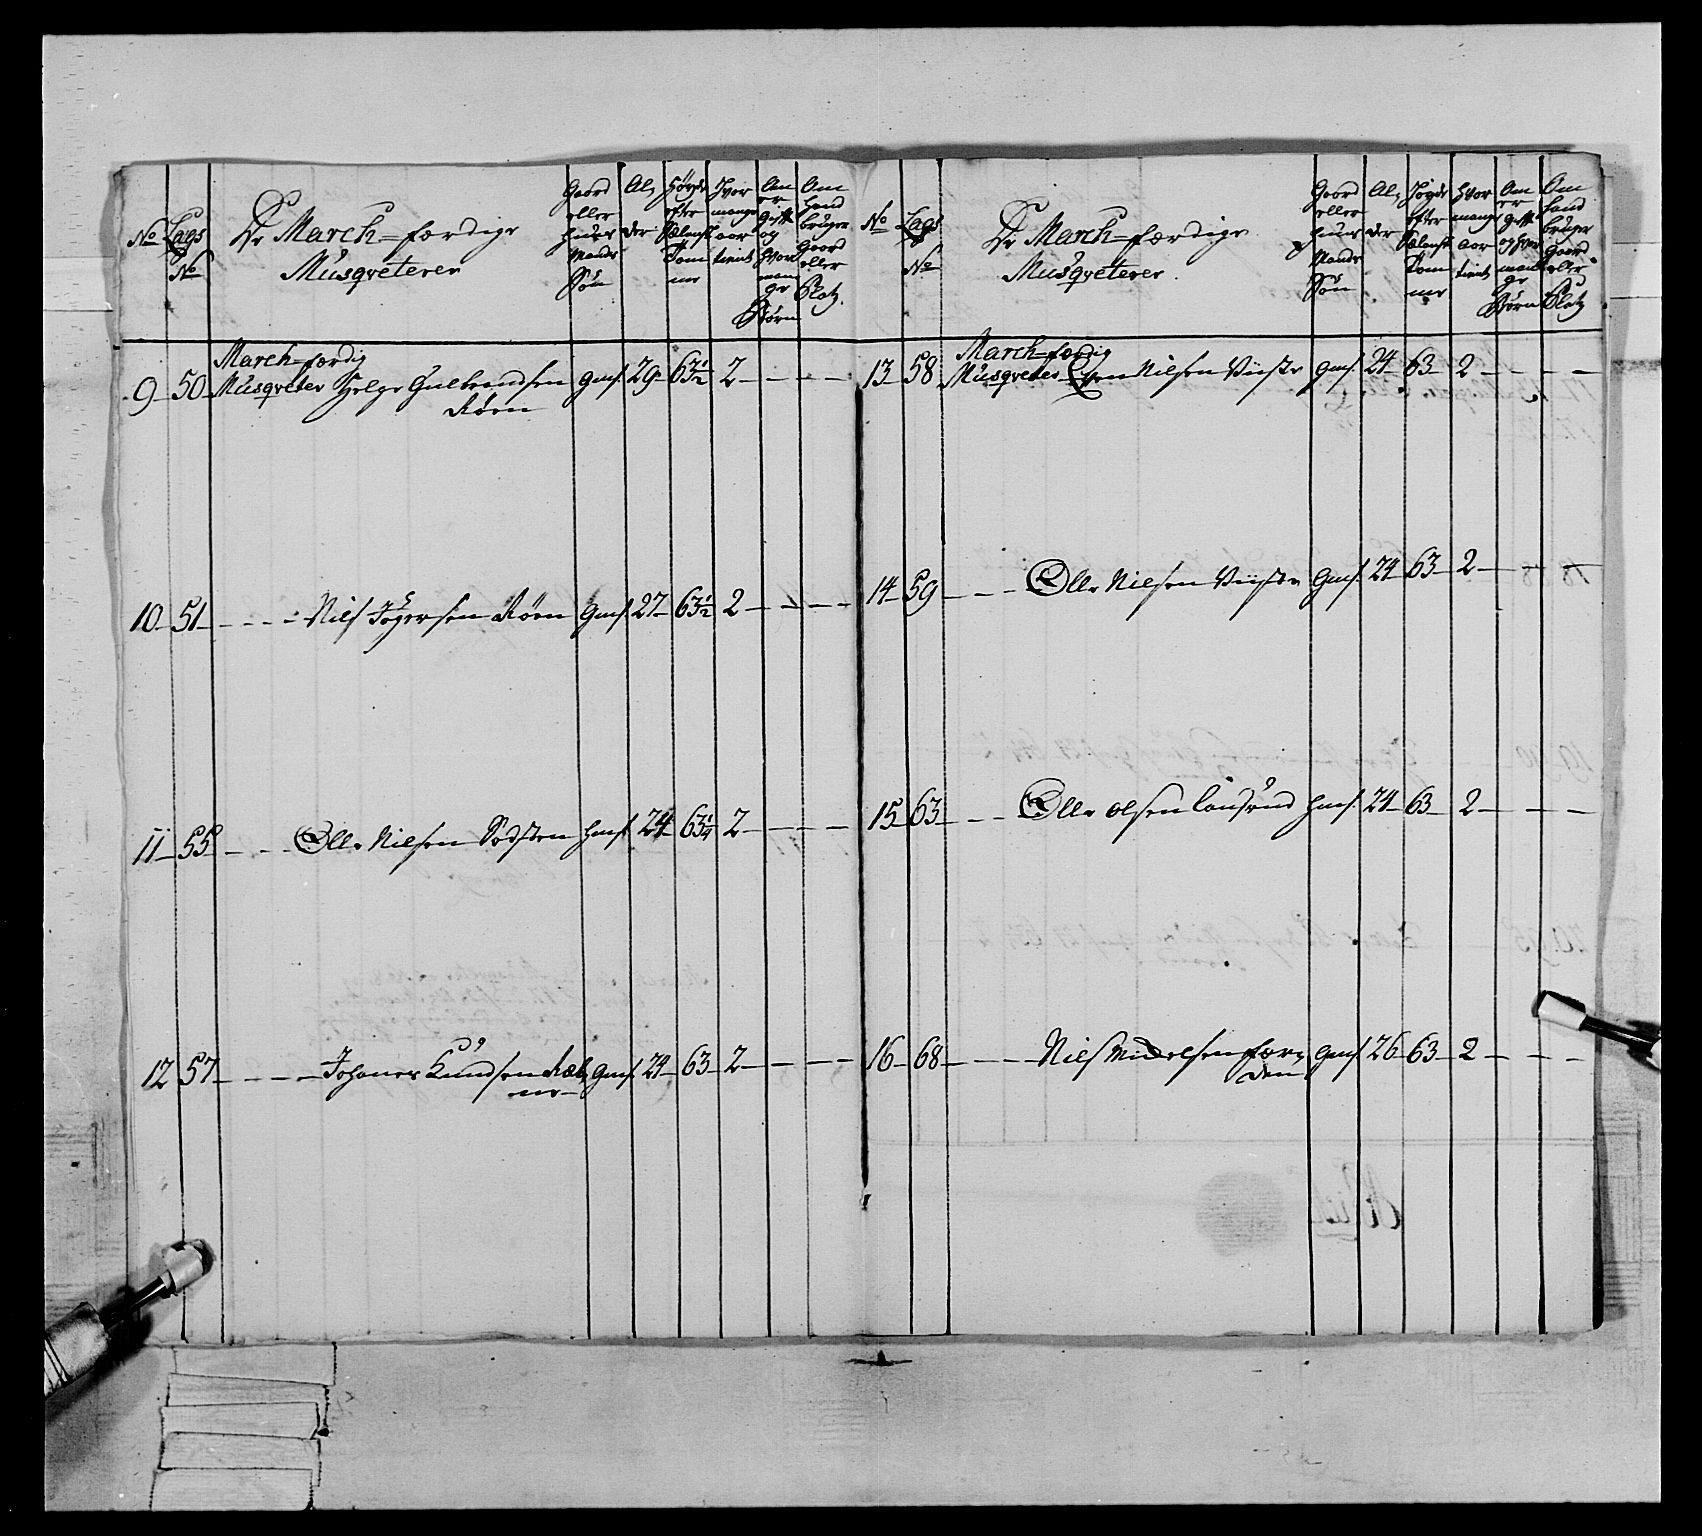 No Lags No De March=færdige Musqveterer Gaard eller Huus Mands Søn Al, der Høyde efter Sælensk Tommer Hvor mange aar tient Om er Gift og hvor mange Børn Om hand bruger Gaard eller Platz.
9 50 March=færdig Musqveter Helge Gulbrandsen Røen gms. 29 63½ 2 – – –
10 51 – – – Nils Jögersen Røen gms. 27 63½ 2 – – –
11 55 – – – Olle Nilsen hms. 24 63¼ 2 – – –
12 57 – – – Johanes Knudsen gms. 24 63 2 – – –
No Lags No De March=færdige Musqveterer. Gaard eller Huus Mands Søn Al, der Høyde efter Sælensk Tommer Hvor mange aar tient Om er gift og hvor mange Børn Om hand bruger Gaard eller Platz
13 58 March=færdig Musqveter Nilsen Viste gms. 24 63 2 – – –
14 59 – – Olle Nilsen Viste gms. 24 63 2 – – –
15 63 – – Olle Olsen hms. 24 63 2 – – –
16 68 – – – Nils gms. 26 63 2 – – –